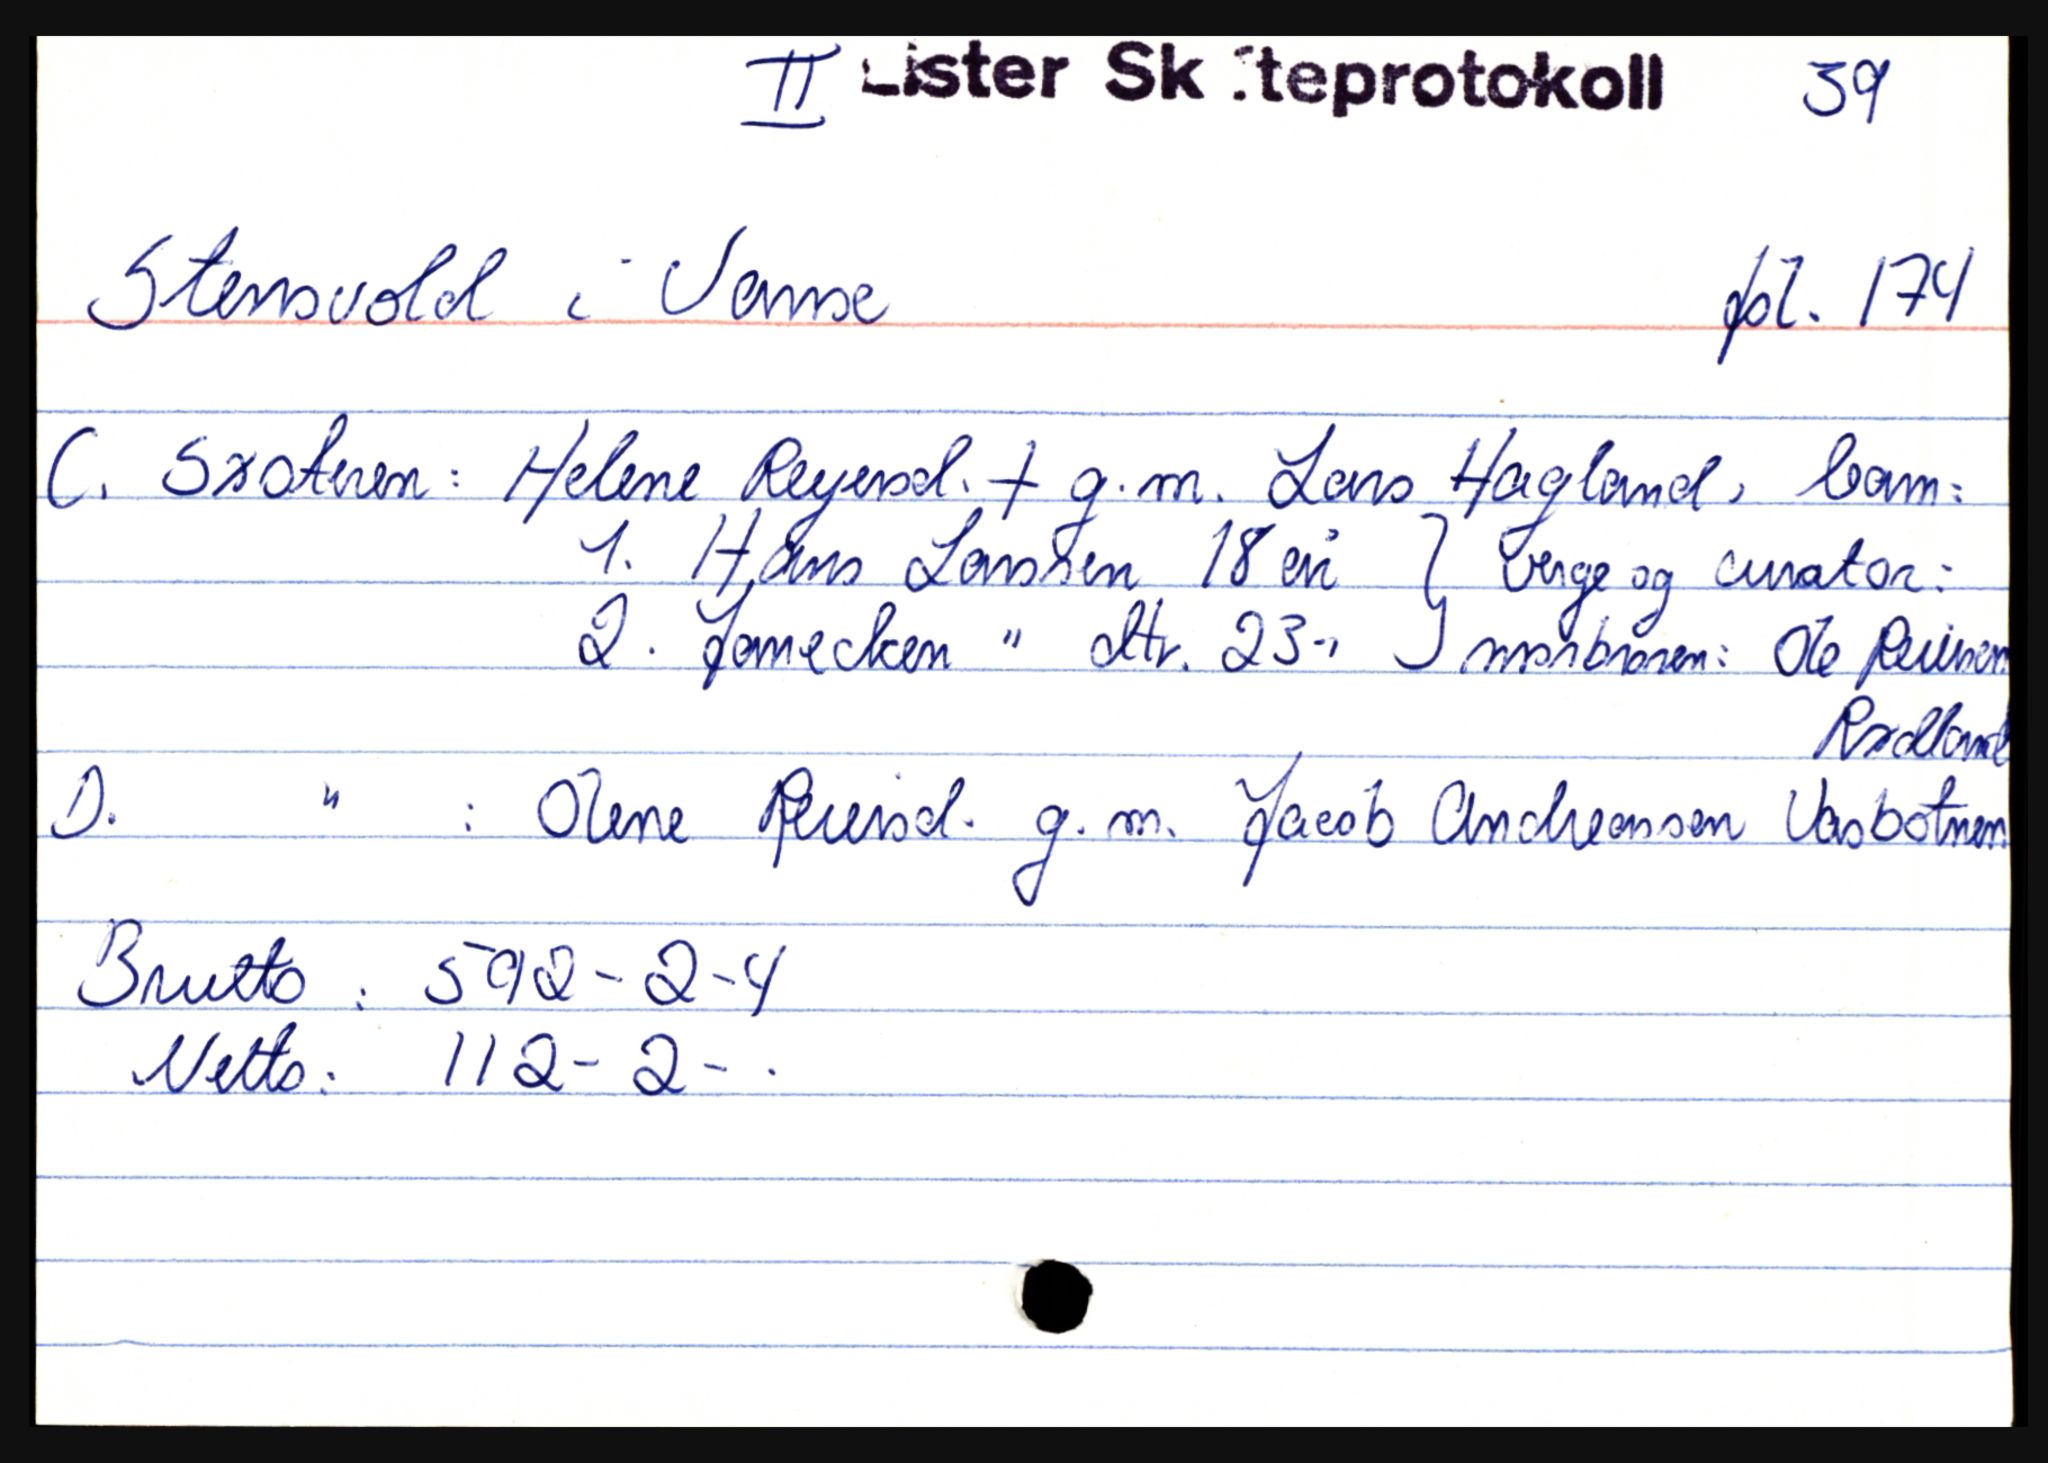 II Lister Sk fteprotokoll 39
Stensvold i Vanse fol. 174
C. Søsteren: Helene Reyersd. + g.m. Lars Hagland, barn:
1. Hans Larssen 18 år } Verge og curator:
2. Janecken " dtr. 23 " } morbroren: Ole Reiersen
Rødland
D. " : Olene Reiersd. g.m. Jacob Andreassen Vasbotnen.
Brutto: 592-2-4
Netto: 112-2-.